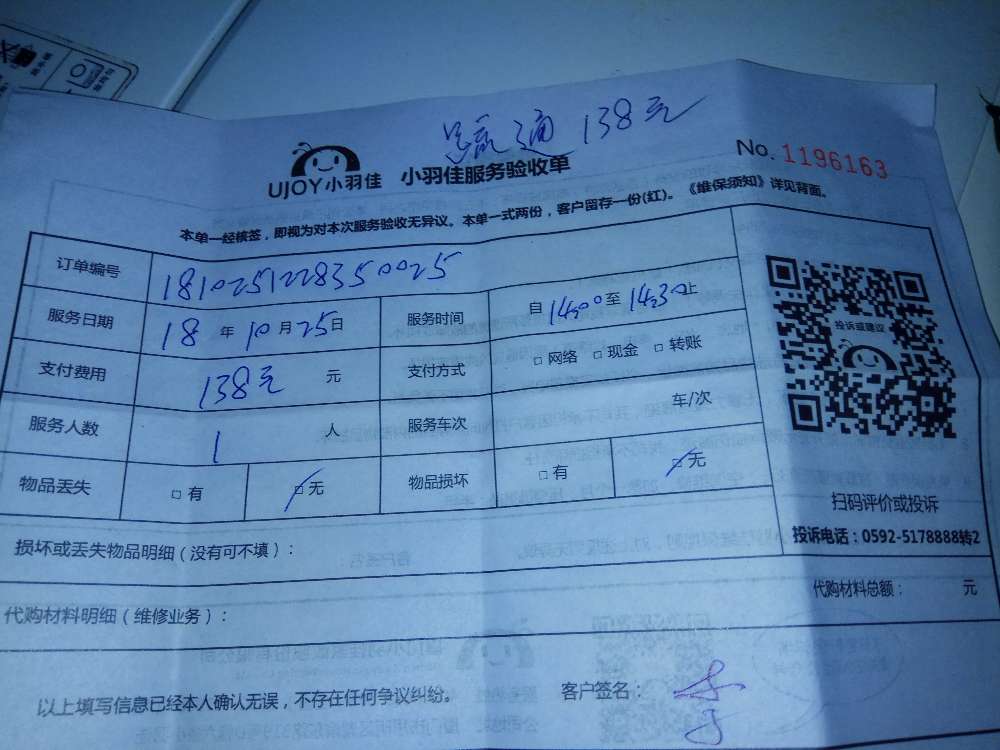 通 138元
UJOY小羽佳 小羽佳服务验收单 No. 1196163
本单一经核签，即视为对本次服务验收无异议。本单一式两份，客户留存一份(红)。《维保须知》详见背面。
订单编号 1810251228350025
服务日期 18 年 10 月 25 日 服务时间 自 14:00 至 14:30 止
支付费用 138元 元 支付方式 □ 网络 □ 现金 □ 转账
服务人数 1 人 服务车次 车/次
物品丢失 □ 有 □ 无 物品损坏 □ 有 □ 无
投诉或建议
扫码评价或投诉
投诉电话：0592-5178888转2
损坏或丢失物品明细（没有可不填）：
代购材料明细（维修业务）： 代购材料总额： 元
以上填写信息已经本人确认无误，不存在任何争议纠纷。 客户签名：